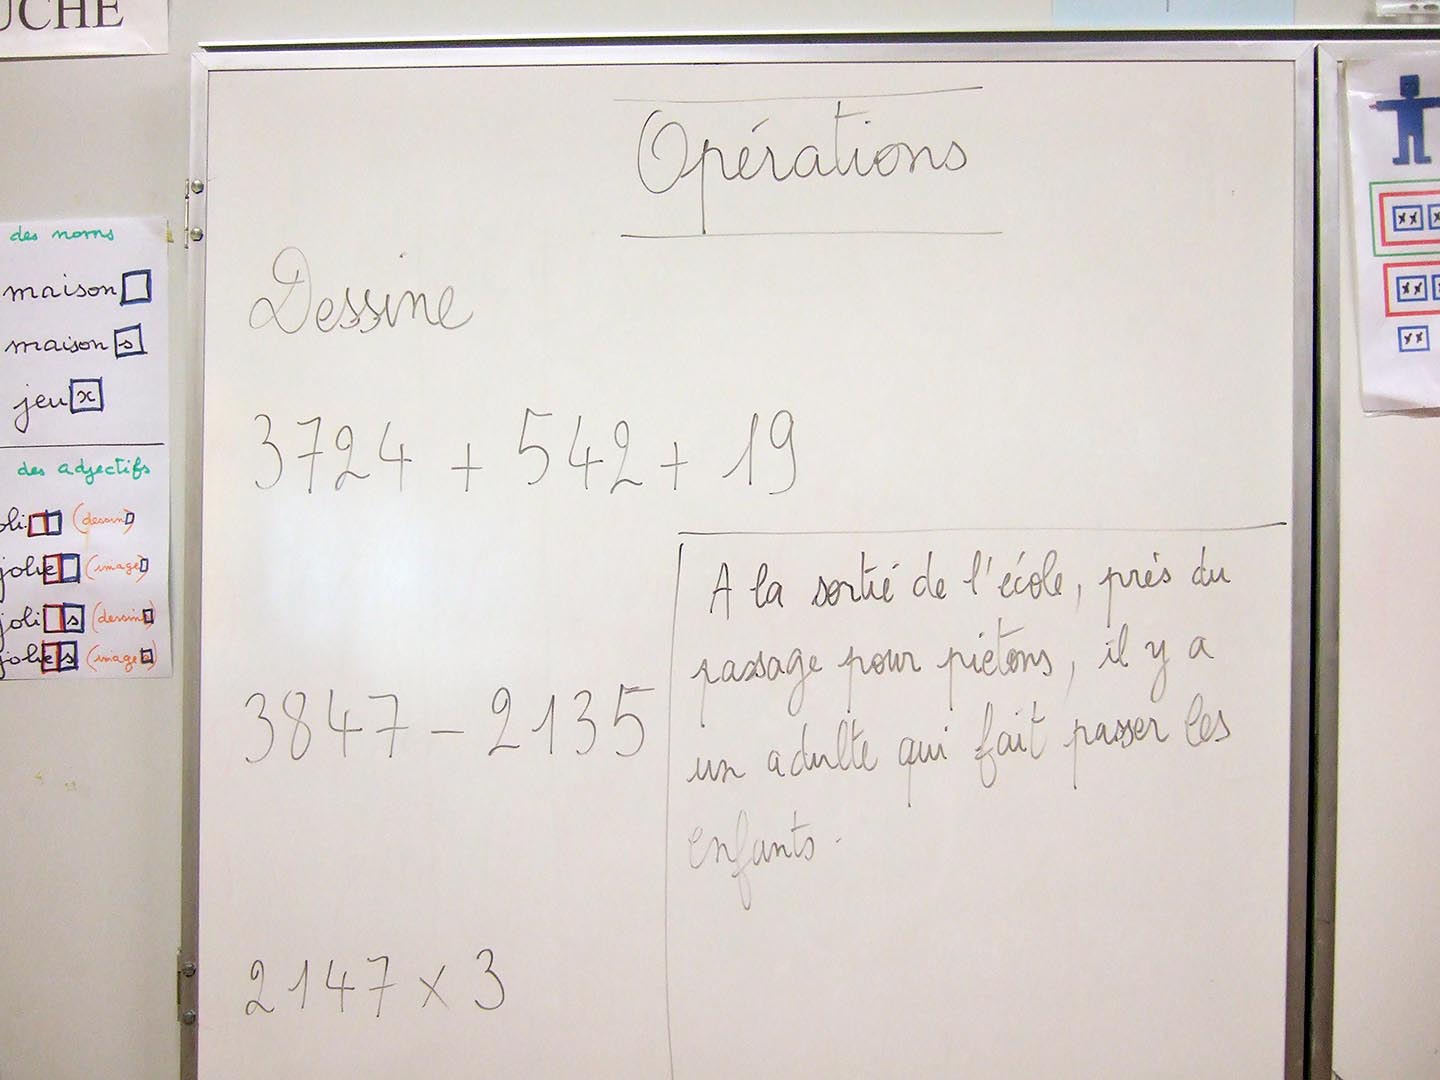 UCHE
des noms
maison
maison s
jeu x
des adjectifs
joli (dessin)
jolie (image)
joli s (dessins)
jolie s (images)
Opérations
Dessine
3724 + 542 + 19
3847 - 2135
2147 x 3
A la sortié de l'école, près du
passage pour piétons, il y a
un adulte qui fait passer les
enfants.
xx x
xx
xx